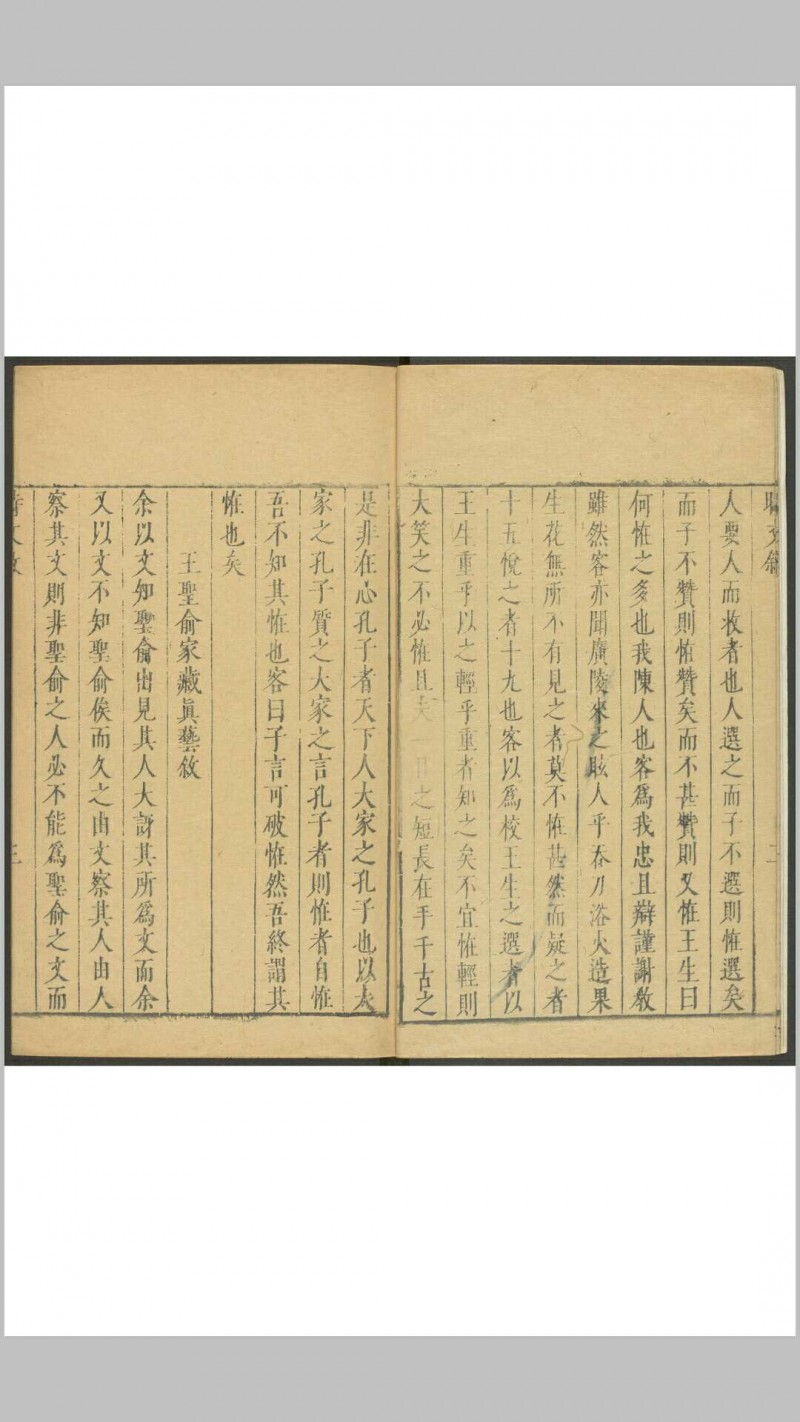 人要人而收者也人選之而子不選則恠選矣
而子不贊則恠贊矣而不甚贊則又恠王生曰
何恠之多也我陳人也客爲我忠且辯謹謝教
雖然客亦聞廣陵來之眩人乎吞刀浴火造果
生花無所不有見之者莫不恠甚然而疑之者
十五悅之者十九也客以爲校王生之選者以
王生重乎以之輕乎重者知之矣不宜恠輕則
大笑之不必恠且夫一日之短長在手千古之
是非在心孔子者天下人大家之孔子也以大
家之孔子質之大家之言孔子者則恠者自恠
吾不知其恠也客曰子言可破恠然吾終謂其
恠也矣
王聖俞家藏眞藝敘
余以文知聖俞出見其人大訝其所爲文而余
又以文不知聖俞俟而久之由文察其人由人
察其文則非聖俞之人必不能爲聖俞之文而
三